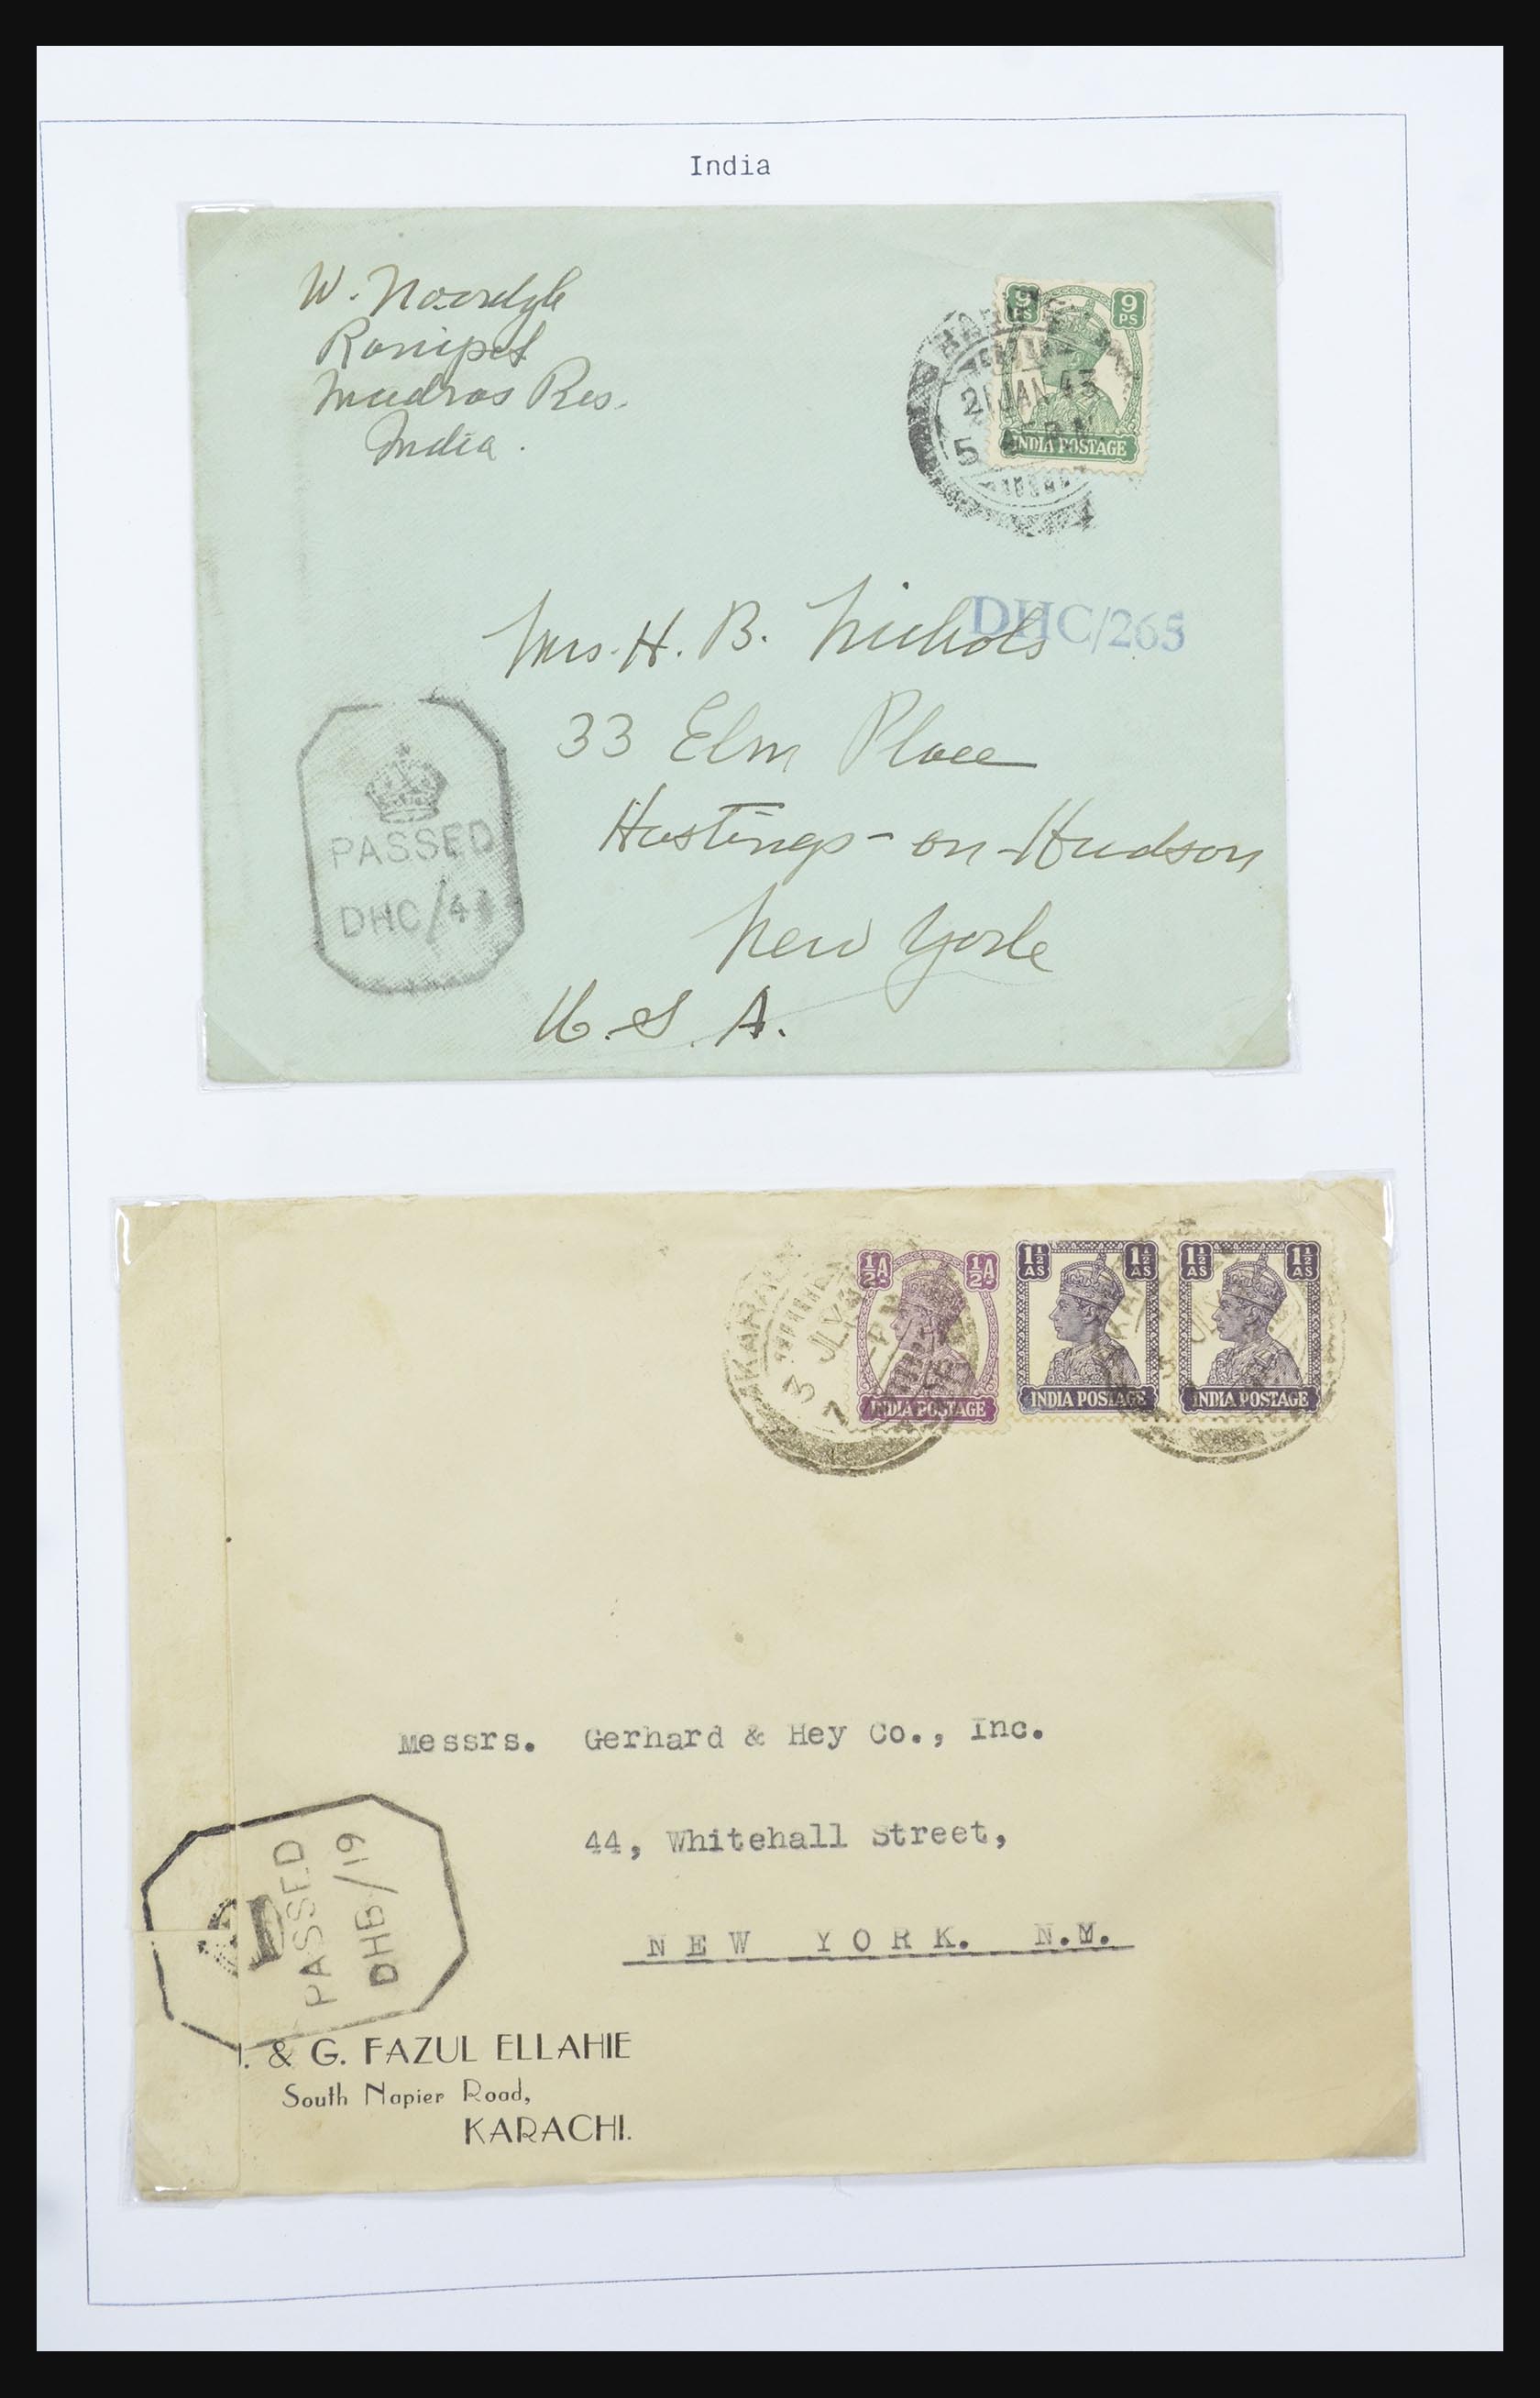 India
W. Noordyk
Ranipet
Madras Res.
India.
9 PS
9 PS
21 JAN 43
5
INDIA POSTAGE
DHC/265
Mrs. H. B. Nichols
33 Elm Place
Hastings-on-Hudson
New York
U.S.A.
PASSED
DHC/4
½A
½A
1½ AS
1½ AS
1½ AS
1½ AS
3 JLY
7
INDIA POSTAGE
INDIA POSTAGE
INDIA POSTAGE
Messrs. Gerhard & Hey Co., Inc.
44, Whitehall Street,
NEW YORK. N.Y.
PASSED
DHB/19
. & G. FAZUL ELLAHIE
South Napier Road,
KARACHI.